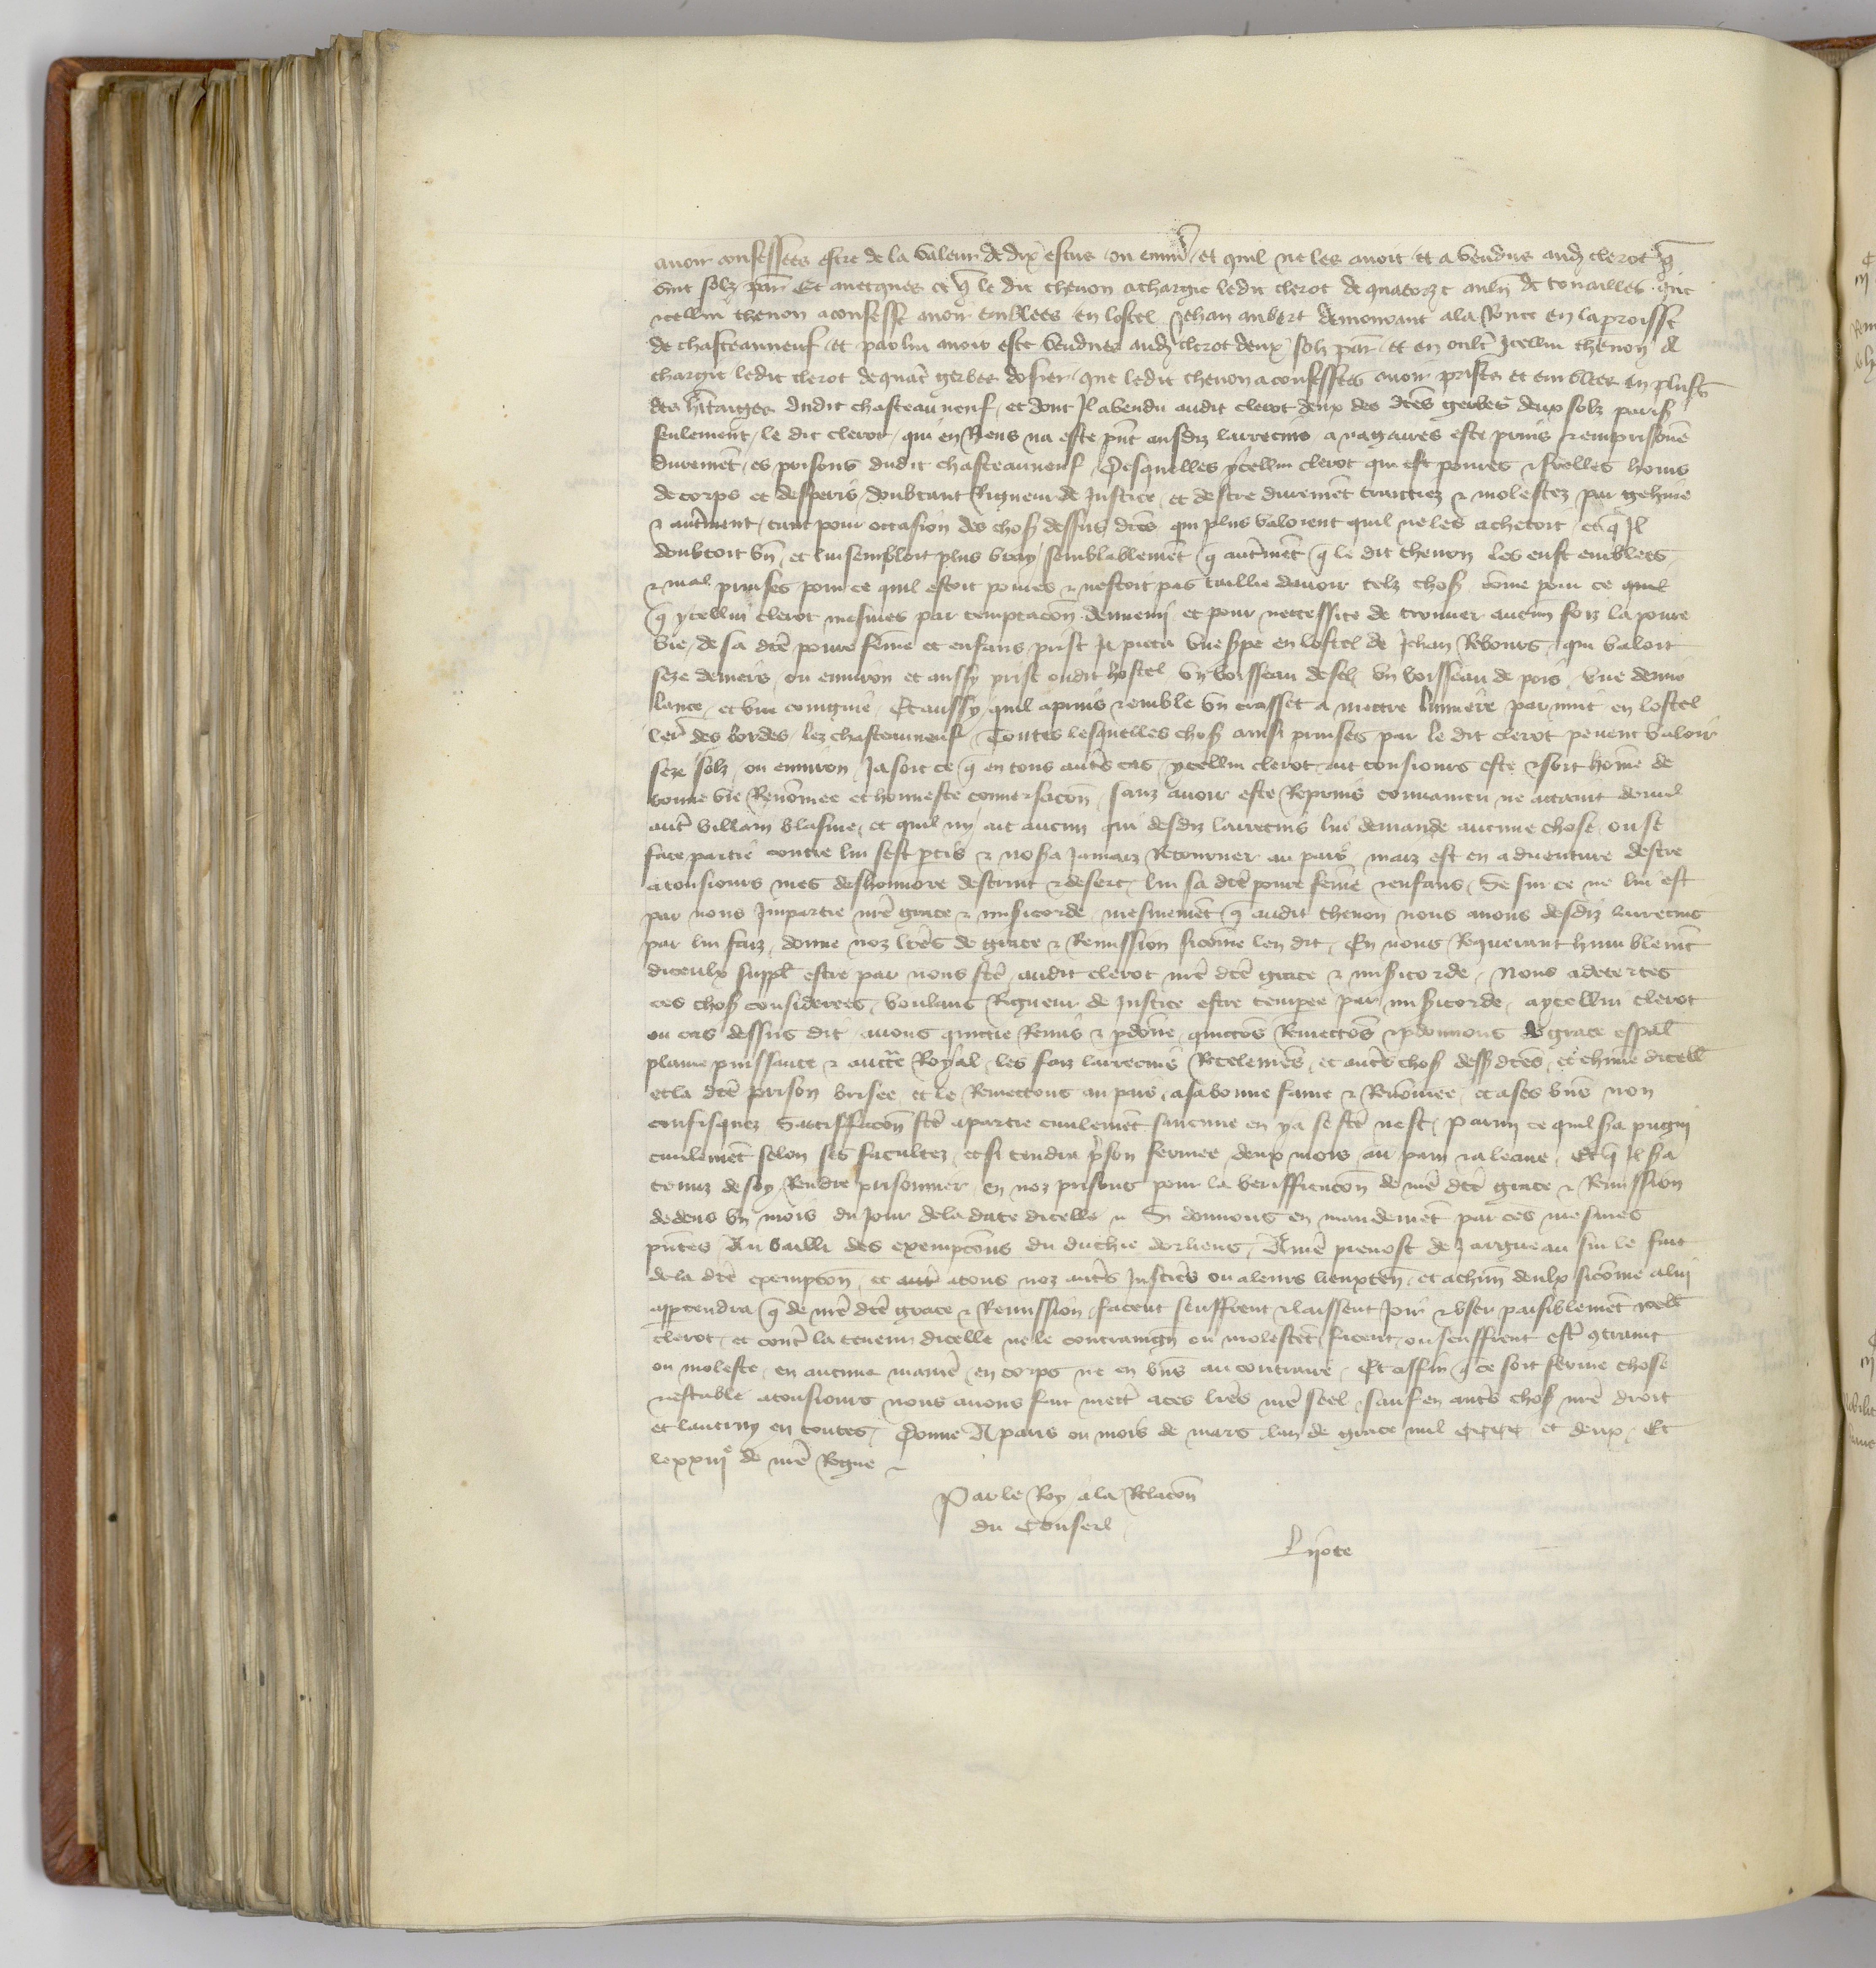 avoir confessees estre de la valeur de dix escus ou environ et quil ne les avoit et a vendus aud clerot
vint solz par Et avecques ce q le dit thenon a chargie ledit clerot de quatorze auln de touailles que
icellui thenon a confesse avoir emblees en lostel Jehan aubert demourant a la en la proisse
de chasteauneuf et par lui avoir este vendues aud clerot deux solz par et en oult Icellui thenon a
chargie ledit clerot de quat gerbes dosier que ledit thenon a confessees avoir prises et emblees en plus
des htaiges dudit chasteau neuf et dont Il a vendu audit clerot deux des dces gerbes deux solz paris
seulement le dit clerot qui en Riens na este pnt ausdiz larrecins a nagaires este prins et emprisone
duremet es prisons dudit chasteauneuf Desquelles ycellui clerot qui est poures et foelles homs
de corps et desperis doubtant Rigueur de Justice et destre durement traictiez et molestez par gehine
et autment tant pour occasion des chos dessus dces qui plus valoient quil ne les achetoit et q Il
doubtoit bn et lui sembloit plus vray semblablement q autmet q le dit thenon les eust emblees
et mal prinses pour ce quil estoit poures et nestoit pas taillie davoir telz chos come pour ce quil
q ycellui clerot mesmes par temptacon dennemi et pour necessite de trouver aucun foiz la poure
vie de sa dce poure feme et enfans prist Ja pieca une en lostel de Jehan Rebours qui valoit
seze deniers ou environ et aussy prist oudit hostel un boisseau de sel un boisseau de pois une demie
lance et une coingnie Et aussy quil a prins et emble un crasset a mettre lumiere par nuit en lostel
des bordes lez chasteauneuf Toutes lesquelles chos ainsi prinses par le dit clerot pevent valoir
seze solz ou environ Jasoit ce q en tous auts cas ycellui clerot ait tousiours este et soit home de
bonne vie Renomee et honneste conversacon sanz avoir este Reprins convaincu ne attaint dauul
aut villain blasme et quil ny ait aucun qui desdiz larrecins lui demande aucune chose ou se
face partie contre lui sest ptis et nosa Jamaiz Retourner au pais maiz est en adventure destre
a tousiours mes deshonnore destruit et desert lui sa dce poure feme et enfans Se sur ce ne lui est
par nous Impartie nre grace et misicorde mesmemet q audit thenon nous avons desdiz larrecins
par lui faiz donne noz lres de grace et Remission sicome len dit En nous Requerant humblemt
diceulx suppl estre par nous fce audit clerot nre dce grace et misicorde Nous adcertes
ces chos considerees voulans Rigueur de Justice estre tempee par misicorde a ycellui clerot
ou cas dessus dit avons quictie Remis et pdone quictos Remettos et pdonnons de grace espal
plaine puissance et aucte Royal les faiz larrecins Recelemes et auts chos dess dces et chune dicell
et la dce prison brisee et le Remettons au pais a sa bonne fame et Renomee et a ses bns non
confisquez Satisfacon fce a partie civilemet saucune en ya se fce nest parmi ce quil sa pugni
civilemet selon ses facultez et si tendra pson fermee deux mois au pain et a leaue Et q Il sa
tenuz de soy Rendre prisonnier en noz prisons pour la verifficacon de nre dce grace et Remission
dedens un mois du Jour de la date dicelle Si donnons en mandemet par ces mesmes
pntes Au bailli des exempcons du duchie dorliens A nre prevost de Jargueau sur le fait
de la dce exempcon et a tous noz auts Justics ou a leurs lieuxten et a chun deulx sicome a lui
apptendra q de nre dce grace et Remission facent seuffrent et laissent Joir et user paisiblemet ycell
clerot et cont la teneur dicelle ne le contraingn ou molestet facent ou seuffrent est contraint
ou moleste en aucune manie en corps ne en bns au contraire Et affin q ce soit ferme chose
et estable a tousiours nous avons fait mett a ces lres nre seel sauf en auts chos nre droit
et lautruy en toutes Donne A paris ou mois de mars lan de grace mil cccc et deux Et
le xxiij e de nre Regne
Par le Roy a la Relacon
du Conseil